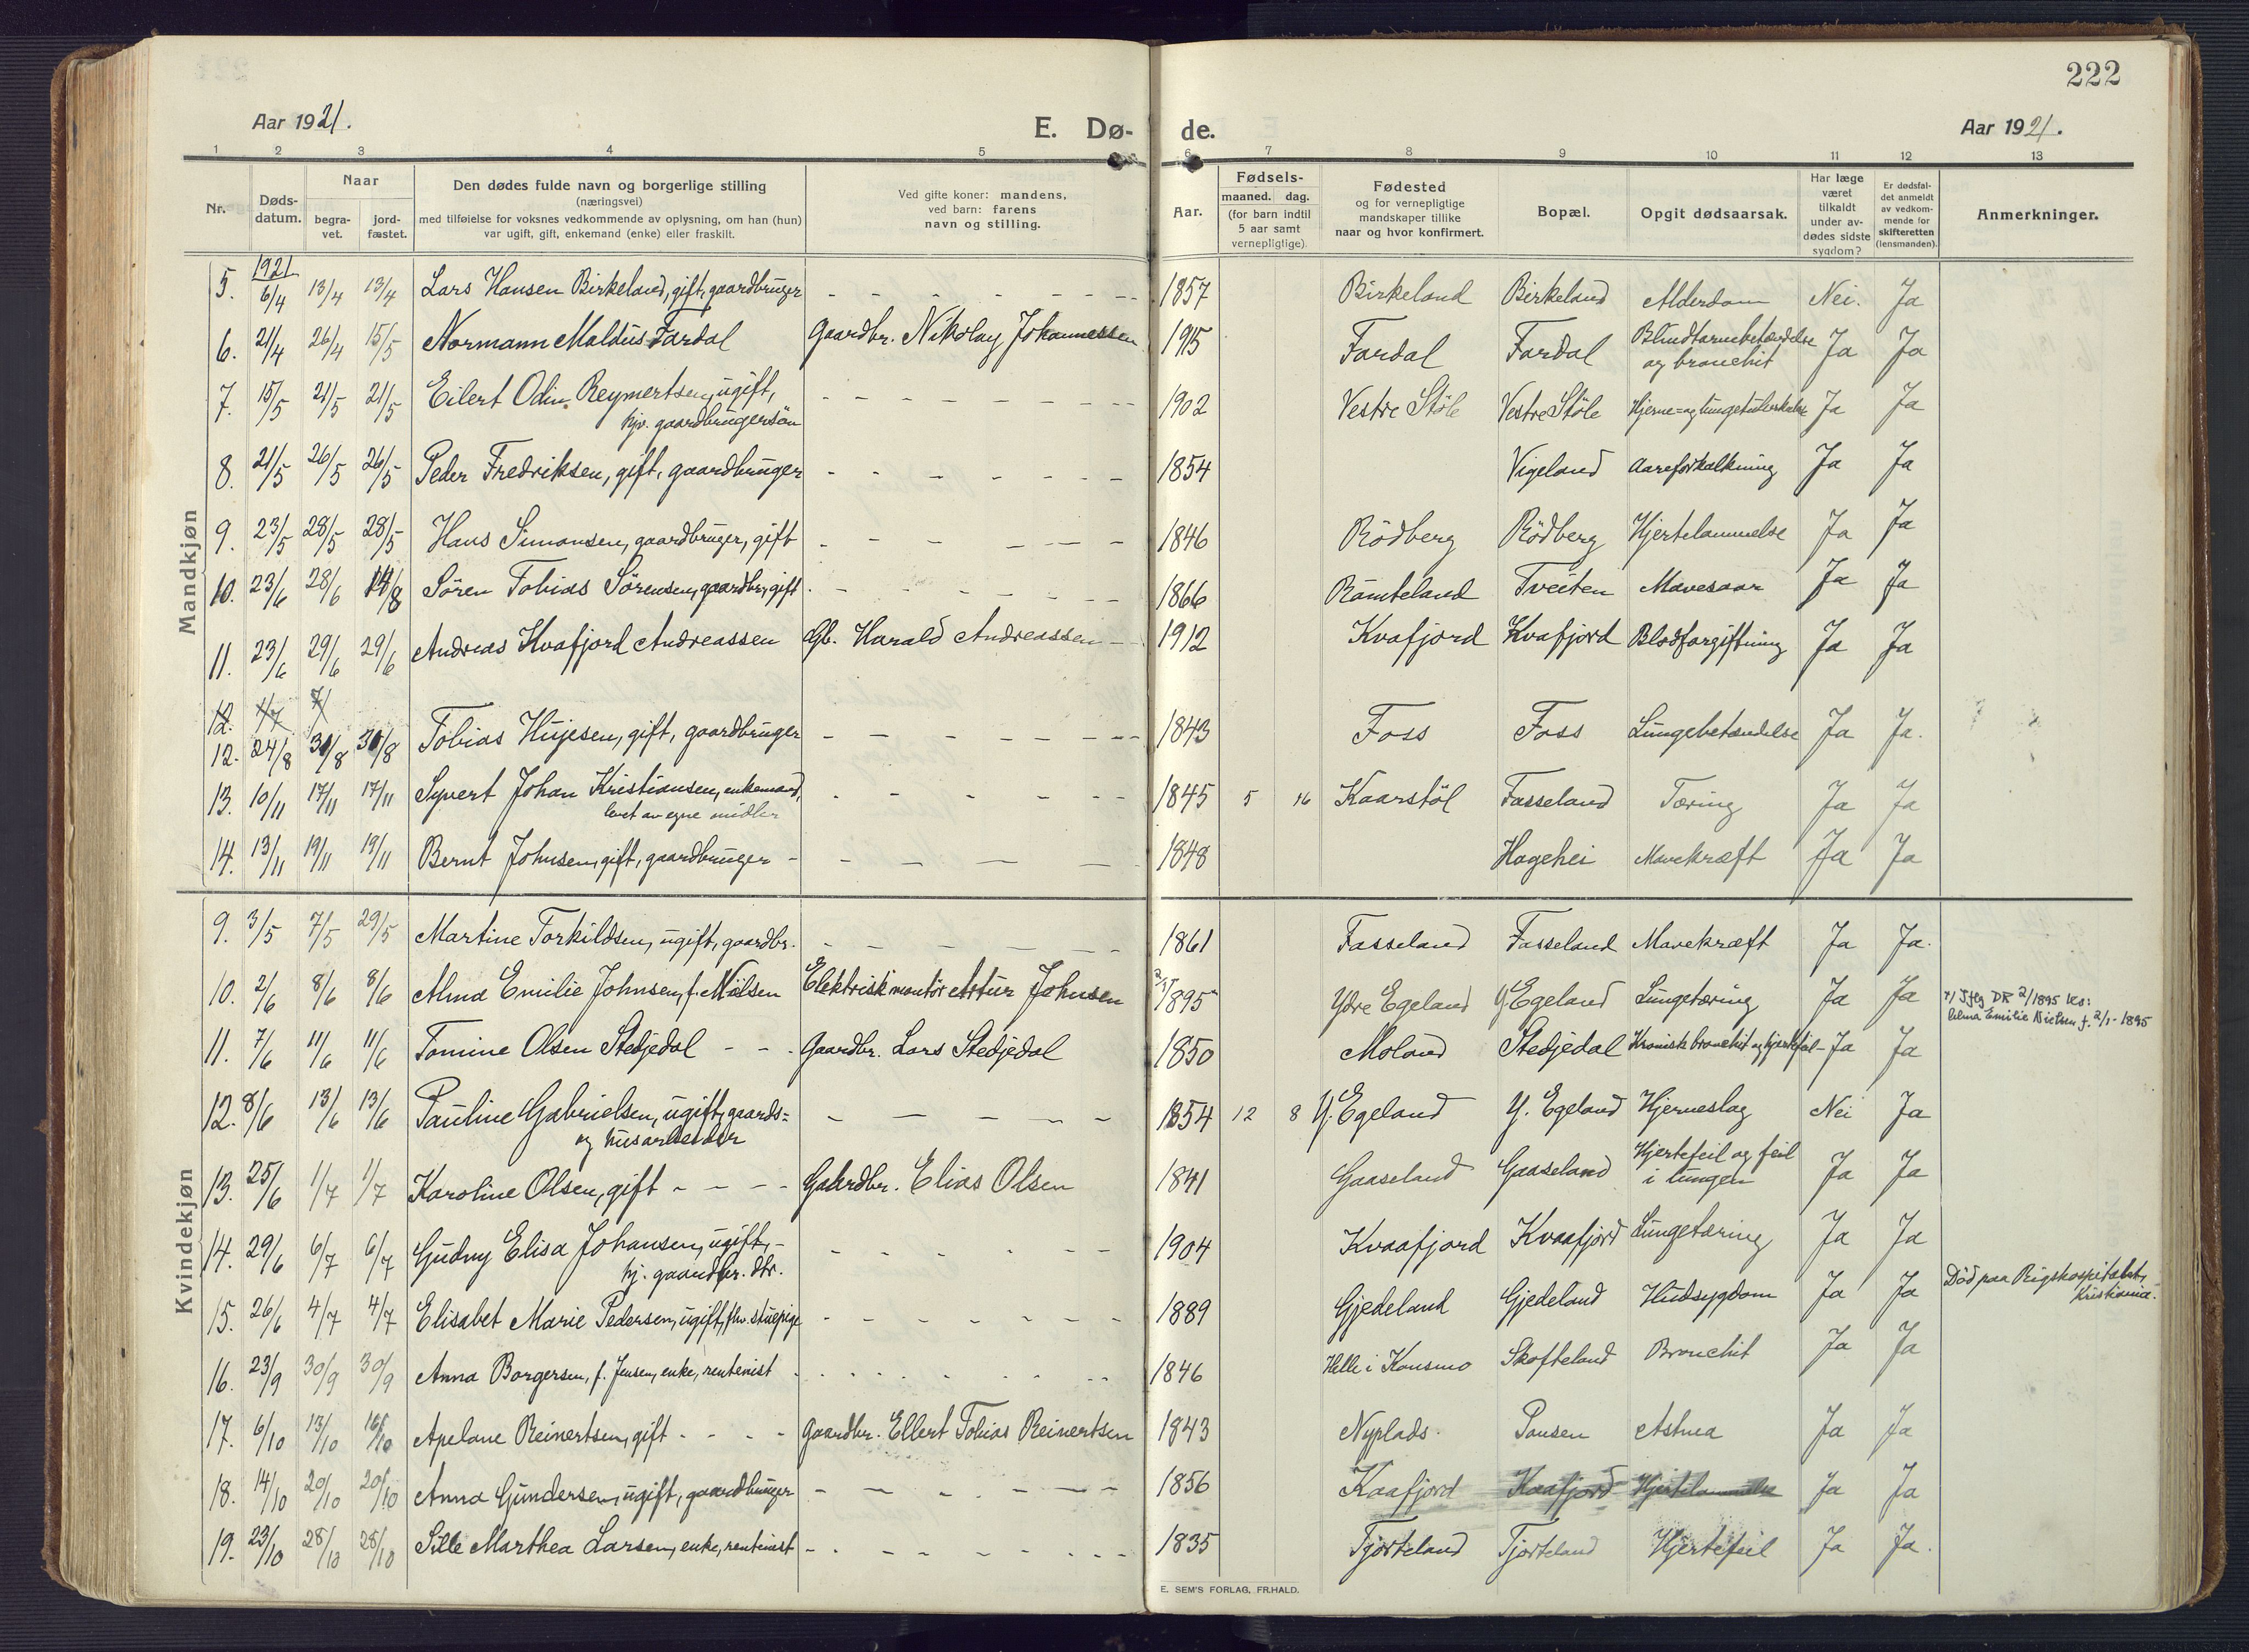 222
Aar 1921.
E. Dø-
de.
Aar 1921.
1 2 3 4 5 6 7 8 9 10 11 12 13
Nr.
Døds-
datum.
Naar
begra-
vet.
jord-
fæstet.
Den dødes fulde navn og borgerlige stilling
(næringsvei)
med tilføielse for voksnes vedkommende av oplysning, om han (hun)
var ugift, gift, enkemand (enke) eller fraskilt.
Ved gifte koner: mandens,
ved barn: farens
navn og stilling.
Aar.
Fødsels-
maaned. dag.
(for barn indtil
5 aar samt
vernepligtige)
Fødested
og for vernepligtige
mandskaper tillike
naar og hvor konfirmert.
Bopæl.
Opgit dødsaarsak.
Har læge
været
tilkaldt
under av-
dødes sidste
sygdom?
Er dødsfal-
det anmeldt
av vedkom-
mende for
skifteretten
(lensmanden).
Anmerkninger.
Mandkjøn
1921
5. 6/4 13/4 13/4 Lars Hansen Birkeland, gift, gaardbruger - - - - - - 1857 Birkeland Birkeland Alderdom Nei. Ja
6. 21/4 26/4 15/5 Normann Maldus Fardal Gaardbr. Nikolay Johannessen 1915 Fardal Fardal Blindtarmbetændelse Ja Ja
og bronchit
7. 15/5 21/5 21/5 Eilert Odin Reymertsen, ugift, - - - - - - - 1902 Vestre Støle Vestre Støle Hjerne- og lungetuberkulose Ja Ja
hjv. gaardbrugersøn
8. 21/5 26/5 26/5 Peder Fredriksen, gift, gaardbruger - - - - - - - 1854 Vigeland Aareforkalkning Ja Ja
9. 23/5 28/5 28/5 Hans Simonsen, gaardbruger, gift - - - - - - 1846 Rödberg Rödberg Hjertelammelse Ja Ja
10. 23/6 28/6 14/8 Sören Tobias Sörensen, gaardbr, gift - - - - - - 1866 Ramteland Tveiten Mavesaar Ja Ja
11. 23/6 29/6 29/6 Andreas Kvafjord Andreassen Gb. Harald Andreassen - 1912 Kvafjord Kvafjord Blodforgiftning Ja Ja
12. 4/7 7/
12. 24/8 30/8 30/8 Tobias Hujesen, gift, gaardbruger - - - - - - - 1843 Foss Foss Lungebetændelse Ja Ja.
13. 10/11 17/11 17/11 Syvert Johan Kristiansen, enkemand, - - - - - - 1845 5 16 Kaarstöl Fasseland Tæring Ja Ja
levet av egne midler
14. 13/11 19/11 19/11 Bernt Johnsen, gift, gaardbruger - - - - - 1848 Hagehei Mavekræft Ja Ja
Kvindekjøn
9. 3/5 7/5 29/5 Martine Torkildsen, ugift, gaardbr. - - - - - - 1861 Fasseland Fasseland Mavekræft Ja Ja.
10. 2/6 8/6 8/6 Alma Emilie Johnsen, f. Nilsen Elektrisk montör Artur Johnsen 2/1 1895 Ydre Egeland Y. Egeland Lungetæring Ja Ja
x/ Iflg DR 2/1895 ks:
Alma Emilie Nielsen f. 2/1-1895
11. 7/6 11/6 11/6 Tomine Olsen Stedjedal - - - Gaardbr. Lars Stedjedal 1850 Moland Stedjedal Kronisk bronchit og hjertefeil - Ja Ja
12. 8/6 13/6 13/6 Pauline Gabrielsen, ugift, gaards= - - - - - 1854 12 8 Y. Egeland Y. Egeland Hjerneslag Nei Ja
og husarbeider
13. 25/6 1/7 1/7 Karoline Olsen, gift - - - - Gaardbr. Elias Olsen 1841 Gaaseland Gaaseland Hjertefeil og feil Ja Ja
i lungen
14. 29/6 6/7 6/7 Gudny Elisa Johansen, ugift, - - - - - - - 1904 Kvaafjord Kvaafjord Lungetæring Ja Ja
hj. gaardbr. dtr.
15. 26/6 4/7 4/7 Elisabet Marie Pedersen, ugift, fhv. stuepige - - - - - - - 1889 Gjedeland Gjedeland Hudsygdom Ja Ja Död paa Rigshospitalet,
Kristiania.
16. 23/9 30/9 30/9 Anna Borgersen, f. Jensen, enke, rentenist - - - - - - 1846 Helle i Konsmo Skofteland Bronchit Ja Ja
17. 6/10 13/10 16/10 Apelone Reinertsen, gift - - - - Gaardbr. Ellert Tobias Reinertsen 1843 Nyplads Pausen Astma Ja Ja
18. 14/10 20/10 20/10 Anna Gundersen, ugift, gaardbruger - - - - - - 1856 Kaafjord Kaafjord Hjertelammelse Ja Ja
19. 23/10 28/10 28/10 Sille Marthea Larsen, enke, rentenist - - - - - - - 1835 Tjorteland Tjorteland Hjertefeil Ja Ja.
E. SEM'S FORLAG, FR.HALD.